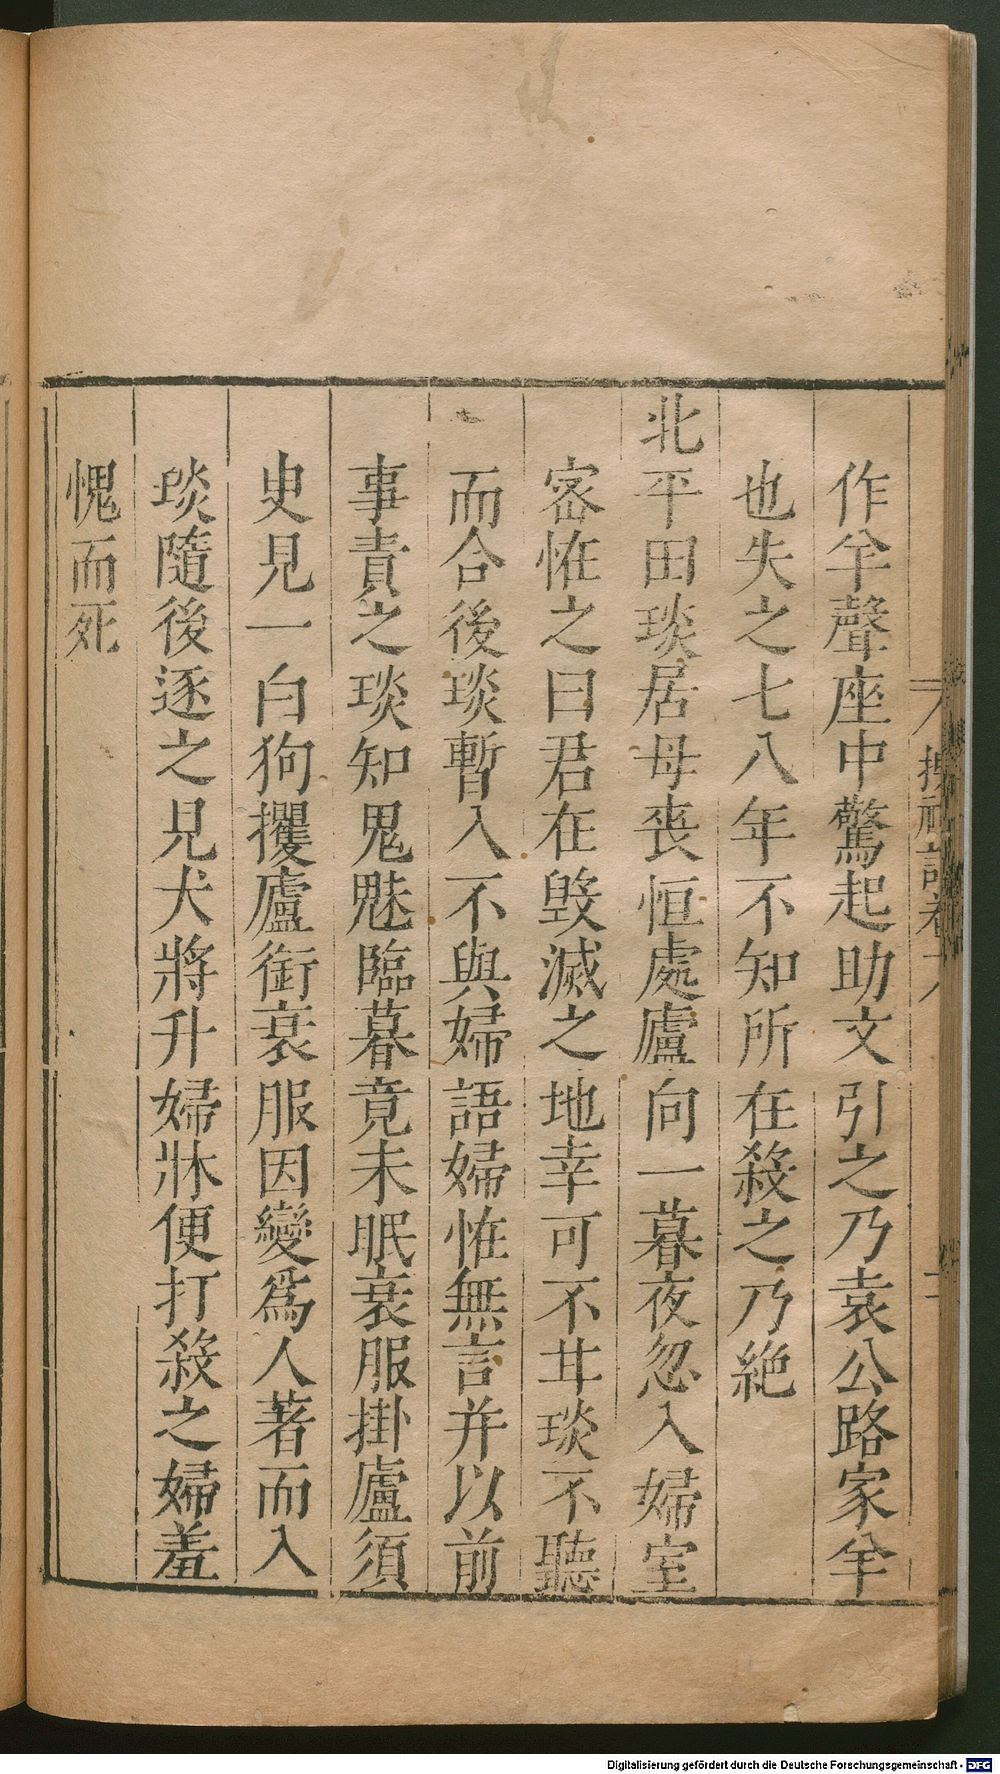 搜神記卷
作羊聲座中驚起助文引之乃袁公路家羊
也失之七八年不知所在殺之乃絶
北平田琰居母喪恒處廬向一暮夜忽入婦室
宻恠之曰君在毀滅之地幸可不甘琰不聽
而合後琰暫入不與婦語婦恠無言并以前
事責之琰知鬼魅臨暮竟未眠衰服掛廬須
史見一白狗攫廬銜衰服因變爲人著而入
琰隨後逐之見犬將升婦牀便打殺之婦羞
愧而死
Digitalisierung gefördert durch die Deutsche Forschungsgemeinschaft - DFG